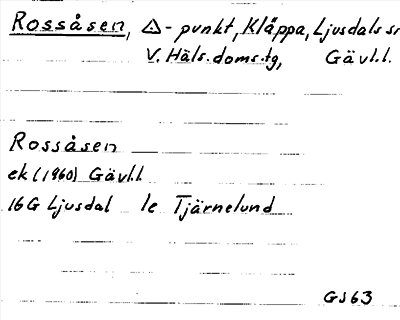 Rossåsen, △-punkt, Kläppa, Ljusdals sn
V. Häls. doms.tg, Gävl.l.
Rossåsen
ek (1960) Gävl.l
16G Ljusdal 1e Tjärnelund
GS63